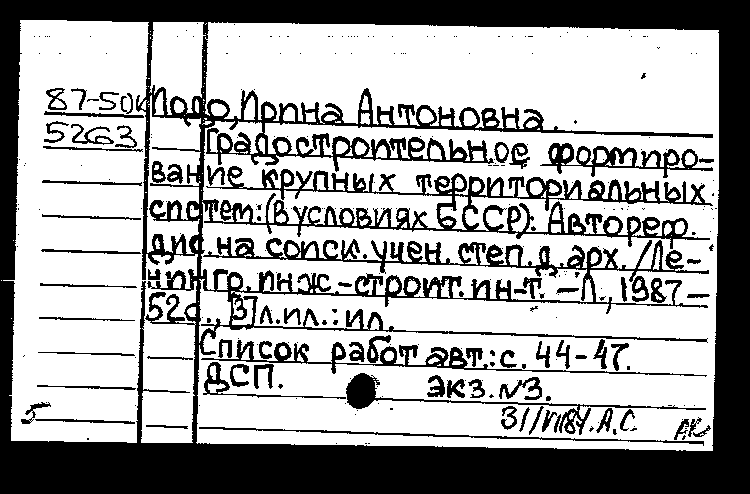 87-50к Иодо, Ирина Антоновна.
52663 Градостроительное формиро-
вание крупных территориальных
систем: (В условиях БССР): Автореф.
дис. на соиск. учен. степ. д. арх. / Ле-
нингр. инж.-строит. ин-т. – Л., 1987. –
52с., [3] л. ил. : ил.
Список работ авт.: с. 44-47.
ДСП. экз. №3.
5 А.С.